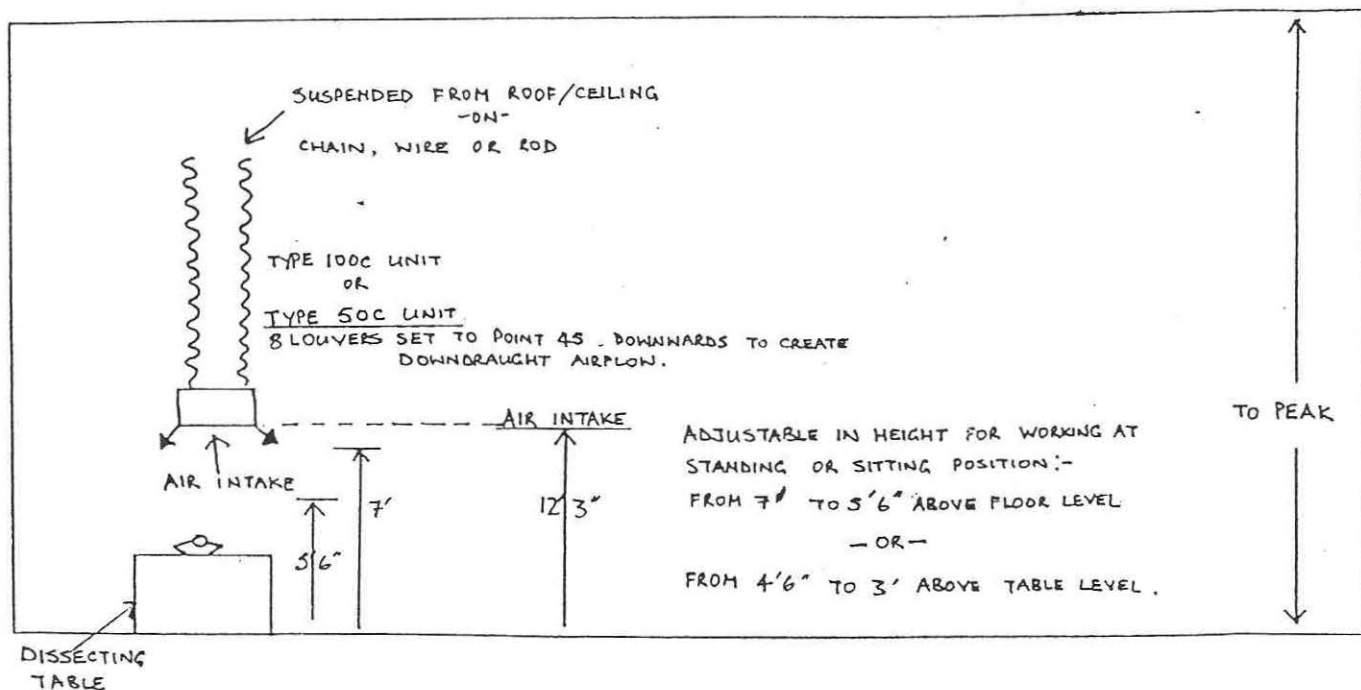 SUSPENDED FROM ROOF/CEILING
-ON-
CHAIN, WIRE OR ROD
TYPE 100C UNIT
OR
TYPE 50C UNIT
8 LOUVERS SET TO POINT 45 . DOWNWARDS TO CREATE
DOWNDRAUGHT AIRFLOW.
AIR INTAKE
AIR INTAKE
7'
12' 3"
5'6"
ADJUSTABLE IN HEIGHT FOR WORKING AT
STANDING OR SITTING POSITION:-
FROM 7' TO 5'6" ABOVE FLOOR LEVEL
- OR -
FROM 4'6" TO 3' ABOVE TABLE LEVEL.
TO PEAK
DISSECTING
TABLE